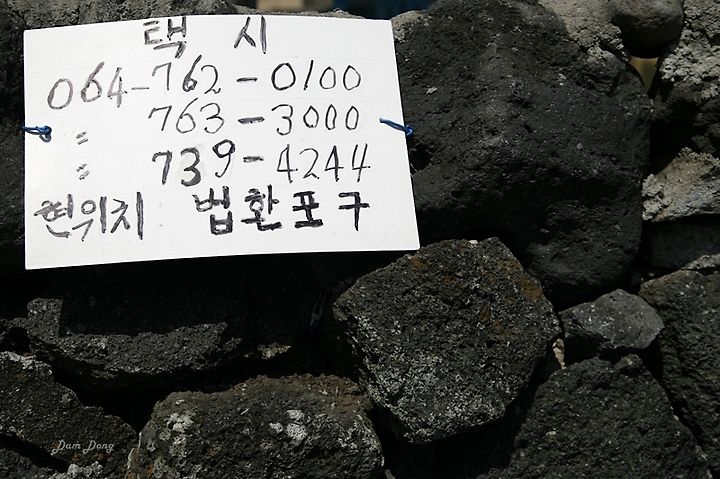 택 시
064-762-0100
〃 763-3000
〃 739-4244
현위치 법환포구
Dam Dong